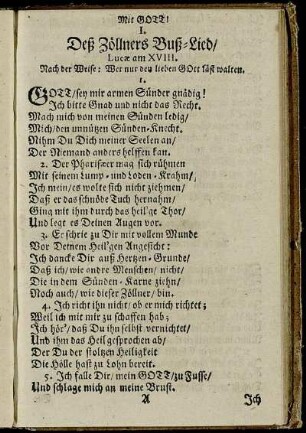 Mit GOTT!
I.
Deß Zöllners Buß-Lied/
Lucæ am XVIII.
Nach der Weise: Wer nur den lieben GOtt läst walten.
1.
GOTT/sey mir armen Sünder gnädig!
Ich bitte Gnad und nicht das Recht.
Mach mich von meinen Sünden ledig/
Mich/den unnützen Sünden-Knecht.
Nihm Du Dich meiner Seelen an/
Der Niemand anders helffen kan.
2. Der Pharisäer mag sich rühmen
Mit seinem Lump- und Loden-Krahm/
Ich mein/es wolte sich nicht ziehmen/
Daß er das schnöde Tuch hernahm/
Ging mit ihm durch das heil'ge Thor/
Und legt es Deinen Augen vor.
3. Er schrie zu Dir mit vollem Munde
Vor Deinem Heil'gen Angesicht:
Ich dancke Dir auß Hertzen-Grunde/
Daß ich/wie andre Menschen/nicht/
Die in dem Sünden-Karne ziehn/
Noch auch/wie dieser Zöllner/bin.
4. Ich richt ihn nicht/ob er mich richtet;
Weil ich mit mir zu schaffen hab;
Ich hör'/daß Du ihn selbst vernichtet/
Und ihm das Heil gesprochen ab/
Der Du der stoltzen Heiligkeit
Die Höll hast zu Lohn bereit.
5. Ich falle Dir/mein GOTT/zu Fusse/
Und schlage mich an meine Brust.
A Ich